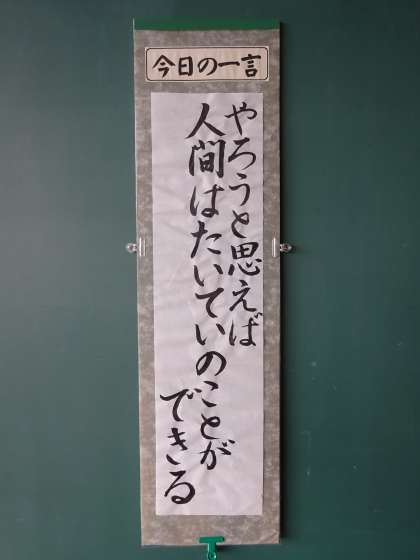 今日の一言
やろうと思えば
人間はたいていのことが
できる